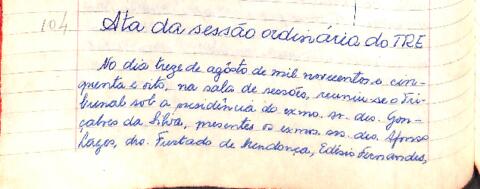 104
Ata da sessão ordinária do TRE
No dia treze de agôsto de mil novecentos e cin-
quenta e oito, na sala de sessões, reuniu-se o Tri-
bunal sob a presidência do exmo. sr. des. Gon-
çalves da Silva, presentes os exmos. srs. des. Afonso
Lages, drs. Furtado de Mendonça, Edésio Fernandes,